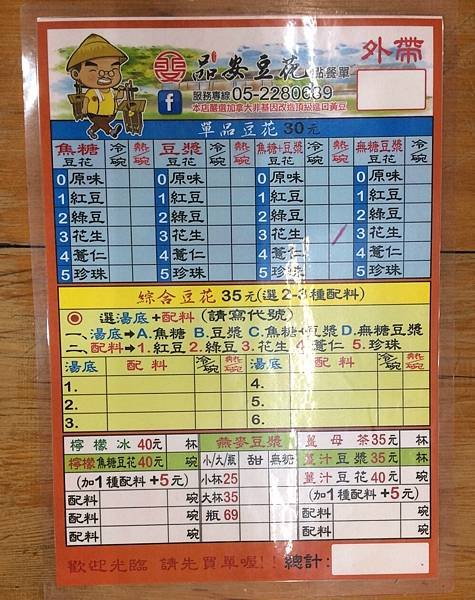 品安豆花 點餐單 外帶
服務專線 05-2280639
本店嚴選加拿大非基因改造頂級進口黃豆
單品豆花 30元
焦糖豆花 冷碗 熱碗 豆漿豆花 冷碗 熱碗 焦糖+豆漿豆花 冷碗 熱碗 無糖豆漿豆花 冷碗 熱碗
0 原味 0 原味 0 原味 0 原味
1 紅豆 1 紅豆 1 紅豆 1 紅豆
2 綠豆 2 綠豆 2 綠豆 2 綠豆
3 花生 3 花生 3 花生 3 花生
4 薏仁 4 薏仁 4 薏仁 4 薏仁
5 珍珠 5 珍珠 5 珍珠 5 珍珠
綜合豆花 35元(選2-3種配料)
選湯底+配料 (請寫代號)
一、湯底➔A.焦糖 B.豆漿 C.焦糖+豆漿 D.無糖豆漿
二、配料➔1.紅豆 2.綠豆 3.花生 4.薏仁 5.珍珠
湯底 配料 冷碗 熱碗 湯底 配料 冷碗 熱碗
1. 4.
2. 5.
3. 6.
檸檬冰 40元 杯 燕麥豆漿 薑母茶 35元 杯
檸檬焦糖豆花 40元 碗 小/大/瓶 甜 無糖 薑汁豆漿 35元 杯
(加1種配料+5元) 小杯 25 薑汁豆花 40元 碗
配料 碗 大杯 35 (加1種配料+5元)
配料 碗 瓶 69 配料 碗
配料 碗 配料 碗
歡迎光臨 請先買單喔!! 總計: